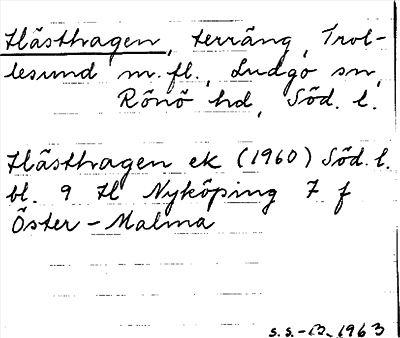 Hästhagen, terräng, Trol-
lesund m. fl., Ludgo sn,
Rönö hd, Söd. l.
Hästhagen ek (1960) Söd. l.
bl. 9 H Nyköping 7 f
Öster-Malma
1963